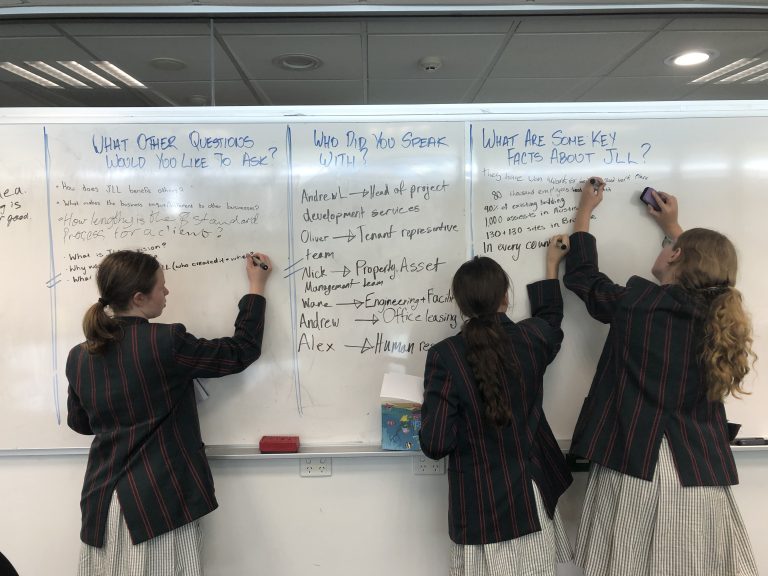 ea.
g is
good.
WHAT OTHER QUESTIONS
WOULD YOU LIKE TO ASK?
• How does JLL benefit others?
• What makes the business important to other businesses?
• How lengthy is the standard
Process for a client?
• What is
• Why (who created it + when?
• What
WHO DID YOU SPEAK
WITH?
Andrew L → Head of project
development services
Oliver → Tenant representive
team
Nick → Property Asset
Management team
Wane → Engineering + Facili
Andrew → Office leasing
Alex → Human re
WHAT ARE SOME KEY
FACTS ABOUT JLL?
They have won
80 thousand employees
90% of existing building
1,000 assests in Austr
130+130 sites in Br
In every coun